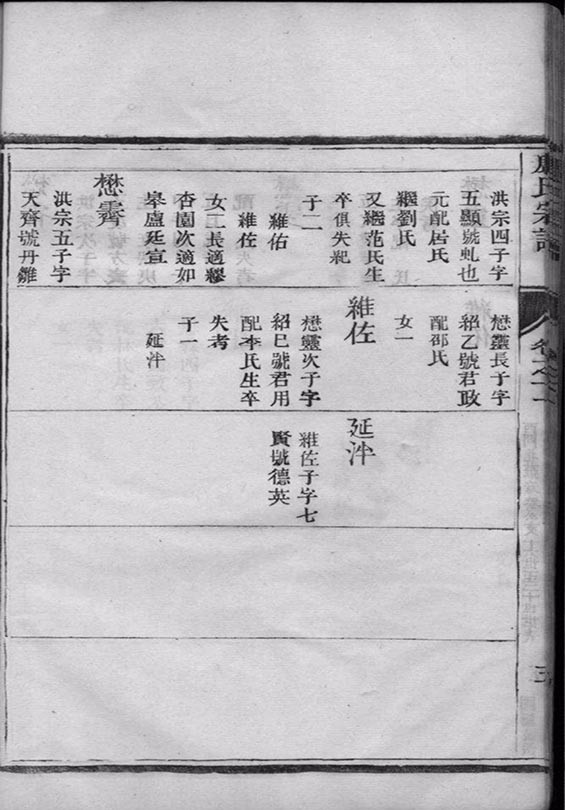 氏宗譜
洪宗四子字
五顯號虬也
元配居氏
繼劉氏
又繼范氏生
卒俱失紀
子二
維佑
維佐
女二長適繆
杏園次適如
皋盧廷宣
懋霽
洪宗五子字
天齊號丹雛
懋靈長子字
紹乙號君政
配邵氏
女一
維佐
懋靈次子字
紹巳號君用
配李氏生卒
失考
子一
延泮
延泮
維佐子字七
賢號德英